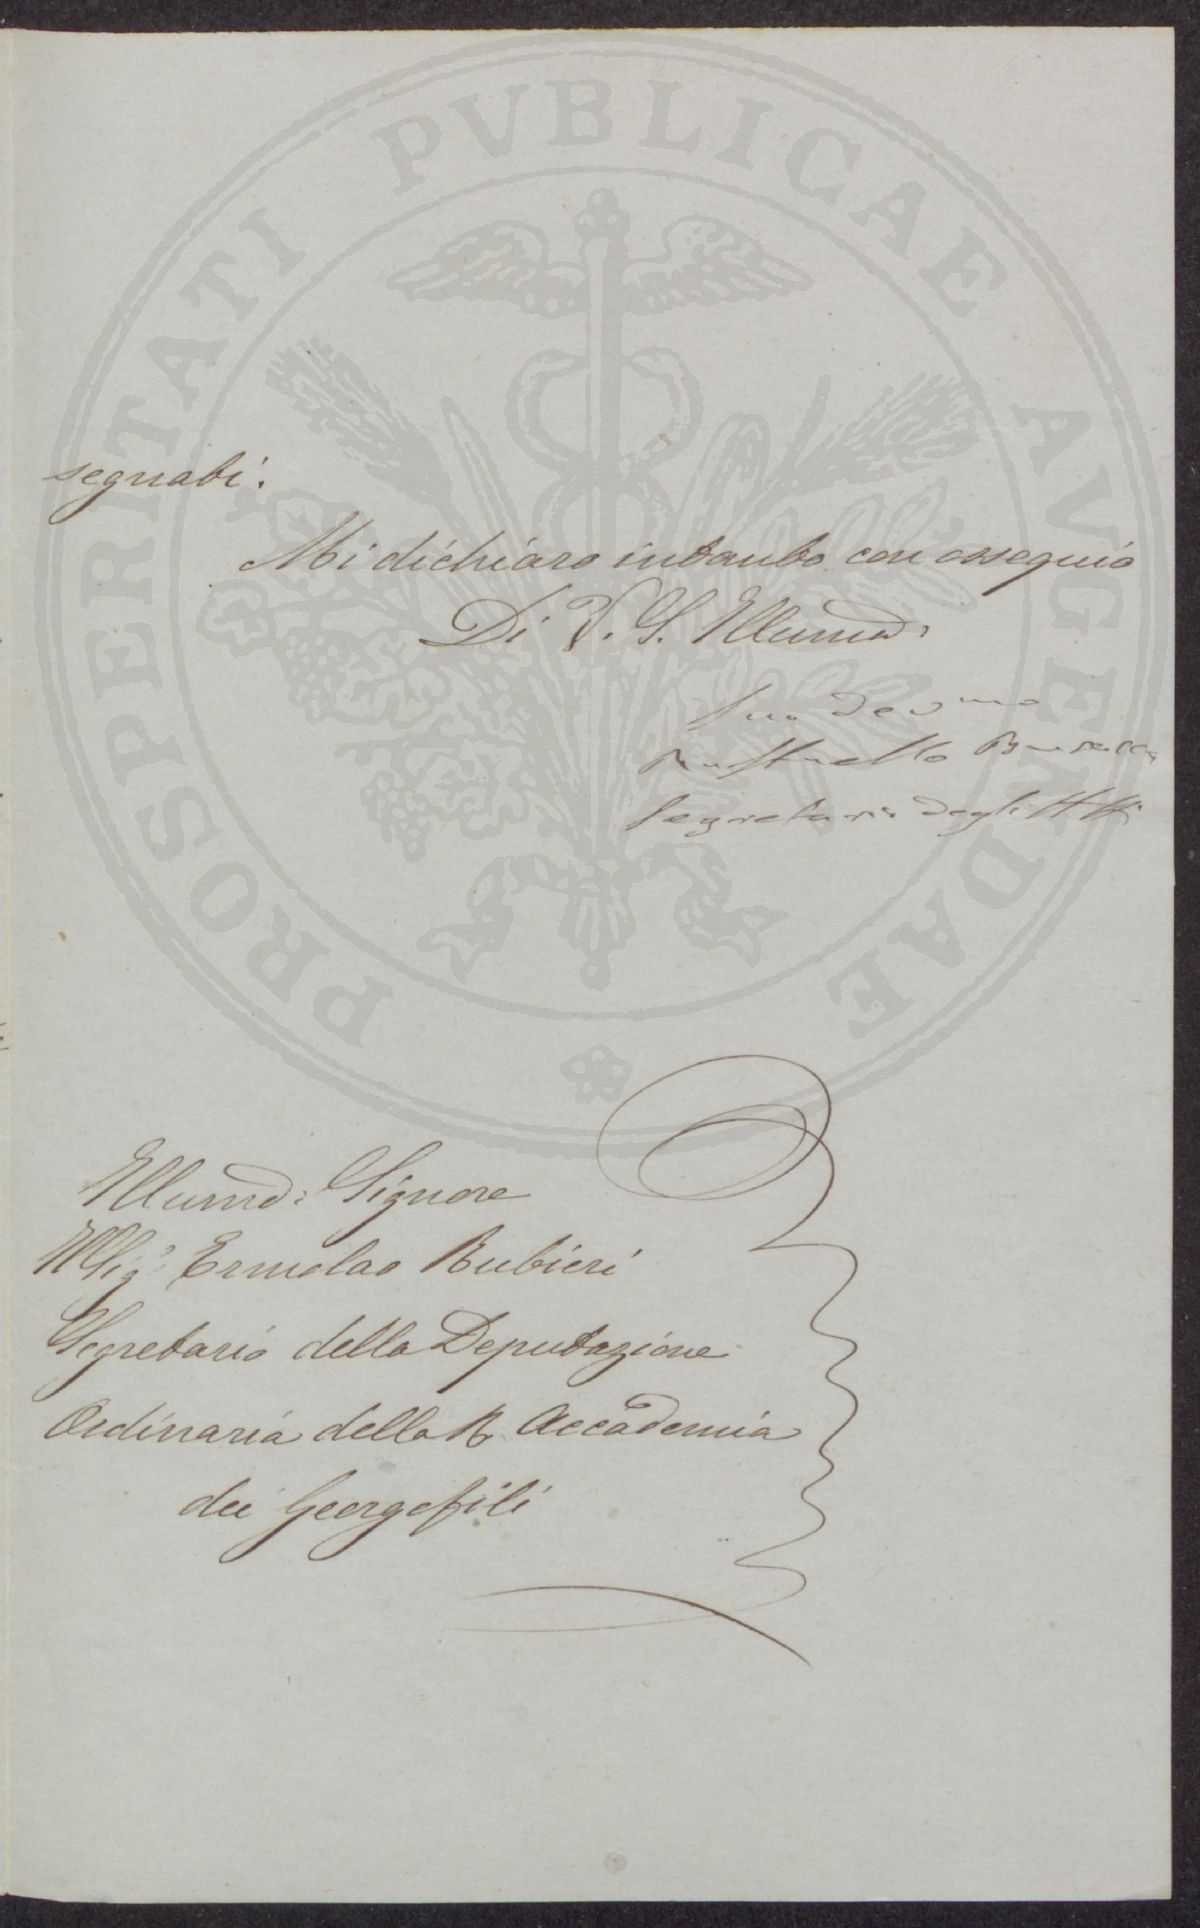 PROSPERITATI PVBLICAE AVGENDAE
segnati.
Mi dichiaro intanto con ossequio
Di V. S. Illuma:
Suo Devmo
Raffaello
Segretario degli Atti
Illumo: Signore
Il Sigr Ermolao Rubieri
Segretario della Deputazione
Ordinaria della R. Accademia
dei Georgofili